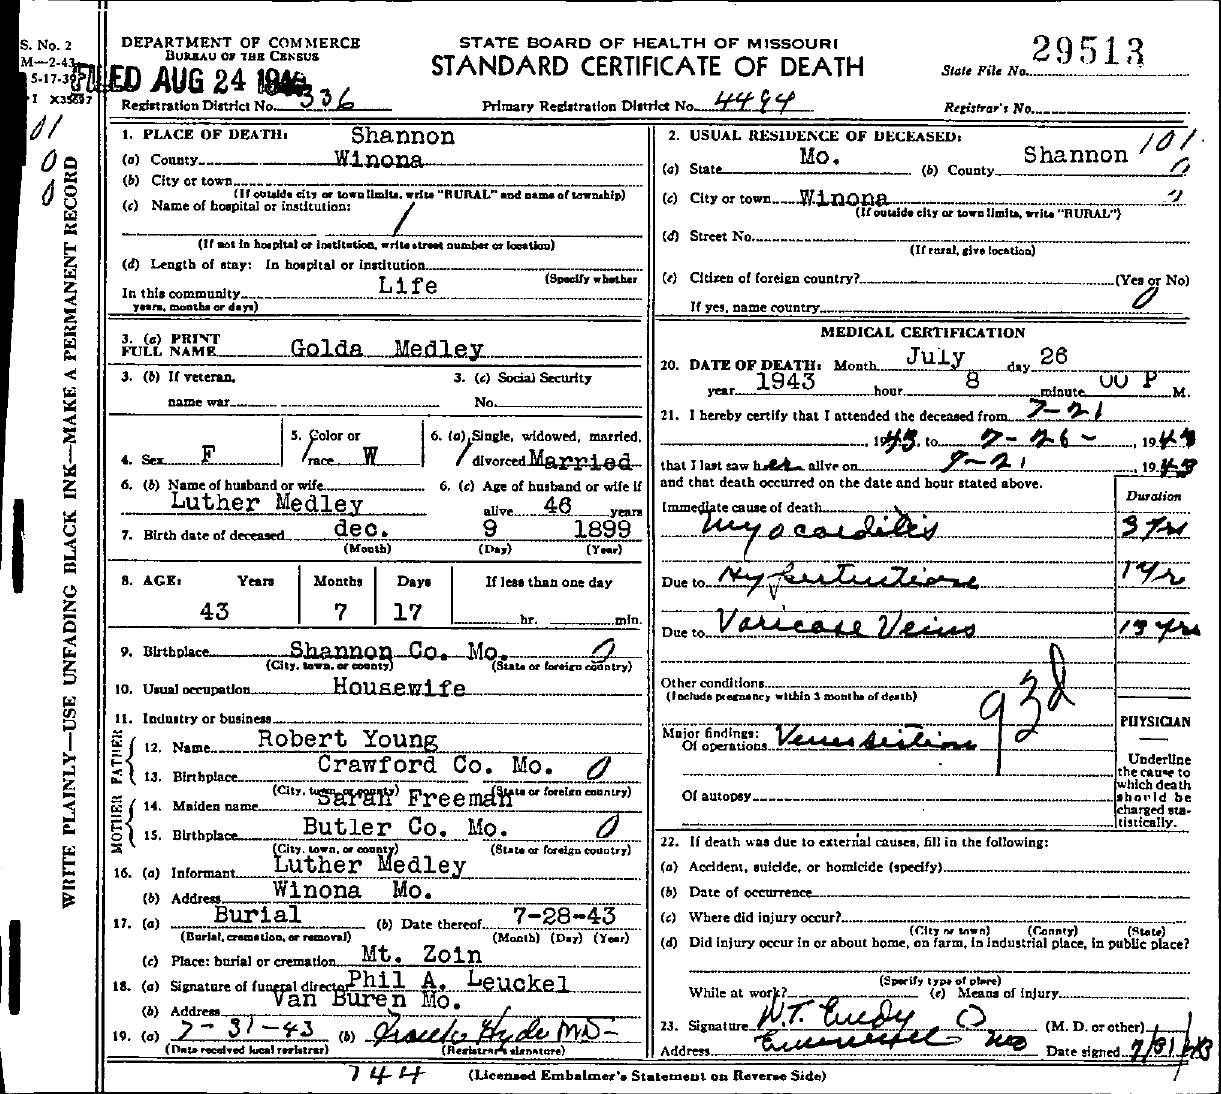 S. No. 2
M—2-43
5-17-39
I X35697
DEPARTMENT OF COMMERCE
BUREAU OF THE CENSUS
FILED AUG 24
Registration District No. 336
STATE BOARD OF HEALTH OF MISSOURI
STANDARD CERTIFICATE OF DEATH
Primary Registration District No. 4494
29513
State File No.
Registrar's No.
01
0
0
WRITE PLAINLY—USE UNFADING BLACK INK—MAKE A PERMANENT RECORD
1. PLACE OF DEATH: Shannon
(a) County Winona
(b) City or town
(If outside city or town limits, write "RURAL" and name of township)
(c) Name of hospital or institution:
/
(If not in hospital or institution, write street number or location)
(d) Length of stay: In hospital or institution
(Specify whether
In this community Life
years, months or days)
3. (a) PRINT
FULL NAME Golda Medley
3. (b) If veteran,
name war
3. (c) Social Security
No.
4. Sex F
5. Color or
race W
6. (a) Single, widowed, married,
divorced Married
6. (b) Name of husband or wife
Luther Medley
6. (c) Age of husband or wife if
alive 46 years
7. Birth date of deceased dec. 9 1899
(Month) (Day) (Year)
8. AGE: Years Months Days If less than one day
43 7 17 hr. min.
9. Birthplace Shannon Co. Mo. 0
(City, town, or county) (State or foreign country)
10. Usual occupation Housewife
11. Industry or business
FATHER
12. Name Robert Young
13. Birthplace Crawford Co. Mo. 0
(City, town, or county) (State or foreign country)
MOTHER
14. Maiden name Sarah Freeman
15. Birthplace Butler Co. Mo. 0
(City, town, or county) (State or foreign country)
16. (a) Informant Luther Medley
(b) Address Winona Mo.
17. (a) Burial (b) Date thereof 7-28-43
(Burial, cremation, or removal) (Month) (Day) (Year)
(c) Place: burial or cremation Mt. Zoin
18. (a) Signature of funeral director Phil A. Leuckel
(b) Address Van Buren Mo.
19. (a) 7-31-43 (b) Frank Hyde MD
(Date received local registrar) (Registrar's signature)
744 (Licensed Embalmer's Statement on Reverse Side)
2. USUAL RESIDENCE OF DECEASED: 101
(a) State Mo. (b) County Shannon 0
(c) City or town Winona
(If outside city or town limits, write "RURAL")
(d) Street No.
(If rural, give location)
(e) Citizen of foreign country? (Yes or No)
If yes, name country 0
MEDICAL CERTIFICATION
20. DATE OF DEATH: Month July day 26
year 1943 hour 8 minute 00 P M.
21. I hereby certify that I attended the deceased from 7-21
, 1943, to 7-26-, 1943
that I last saw her alive on 7-21, 1943
and that death occurred on the date and hour stated above.
Duration
Immediate cause of death
Myocarditis 3 yrs
Due to Hypertentione 1 yr
Due to Varicose Veins 13 yrs
Other conditions
(Include pregnancy within 3 months of death)
93d
Major findings:
Of operations Venesection
Of autopsy
PHYSICIAN
Underline
the cause to
which death
should be
charged sta-
tistically.
22. If death was due to external causes, fill in the following:
(a) Accident, suicide, or homicide (specify)
(b) Date of occurrence
(c) Where did injury occur?
(City or town) (County) (State)
(d) Did injury occur in or about home, on farm, in industrial place, in public place?
(Specify type of place)
While at work? (e) Means of injury
23. Signature W.T. Eudy (M. D. or other)
Address Eminence Mo Date signed 7/31/43